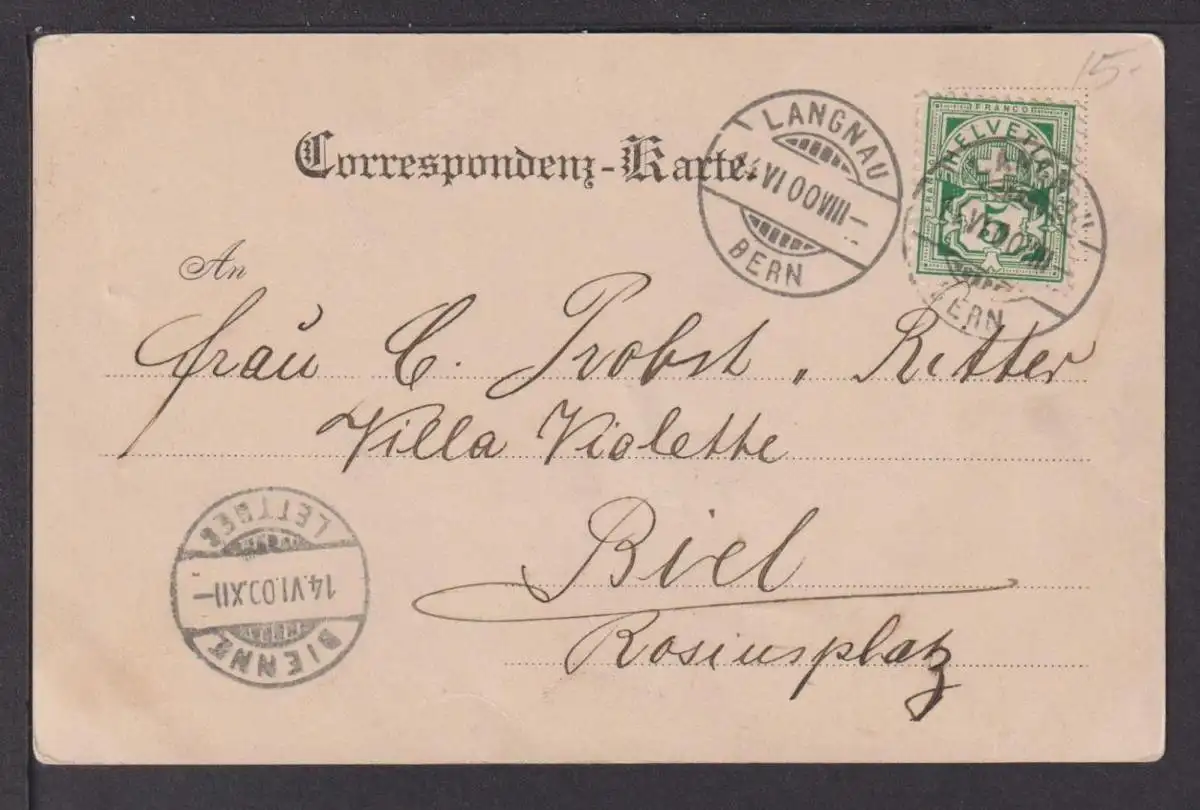 15.-
Correspondenz-Karte.
LANGNAU
14.VI.00VIII–
BERN
FRANCO
HELVETIA
FRANCO
5
BERN
An
Frau C. Probst „ Ritter
Villa Violette
Biel
Rosiusplatz
BIENNE
14.VI.00.XII–
LETTDEP